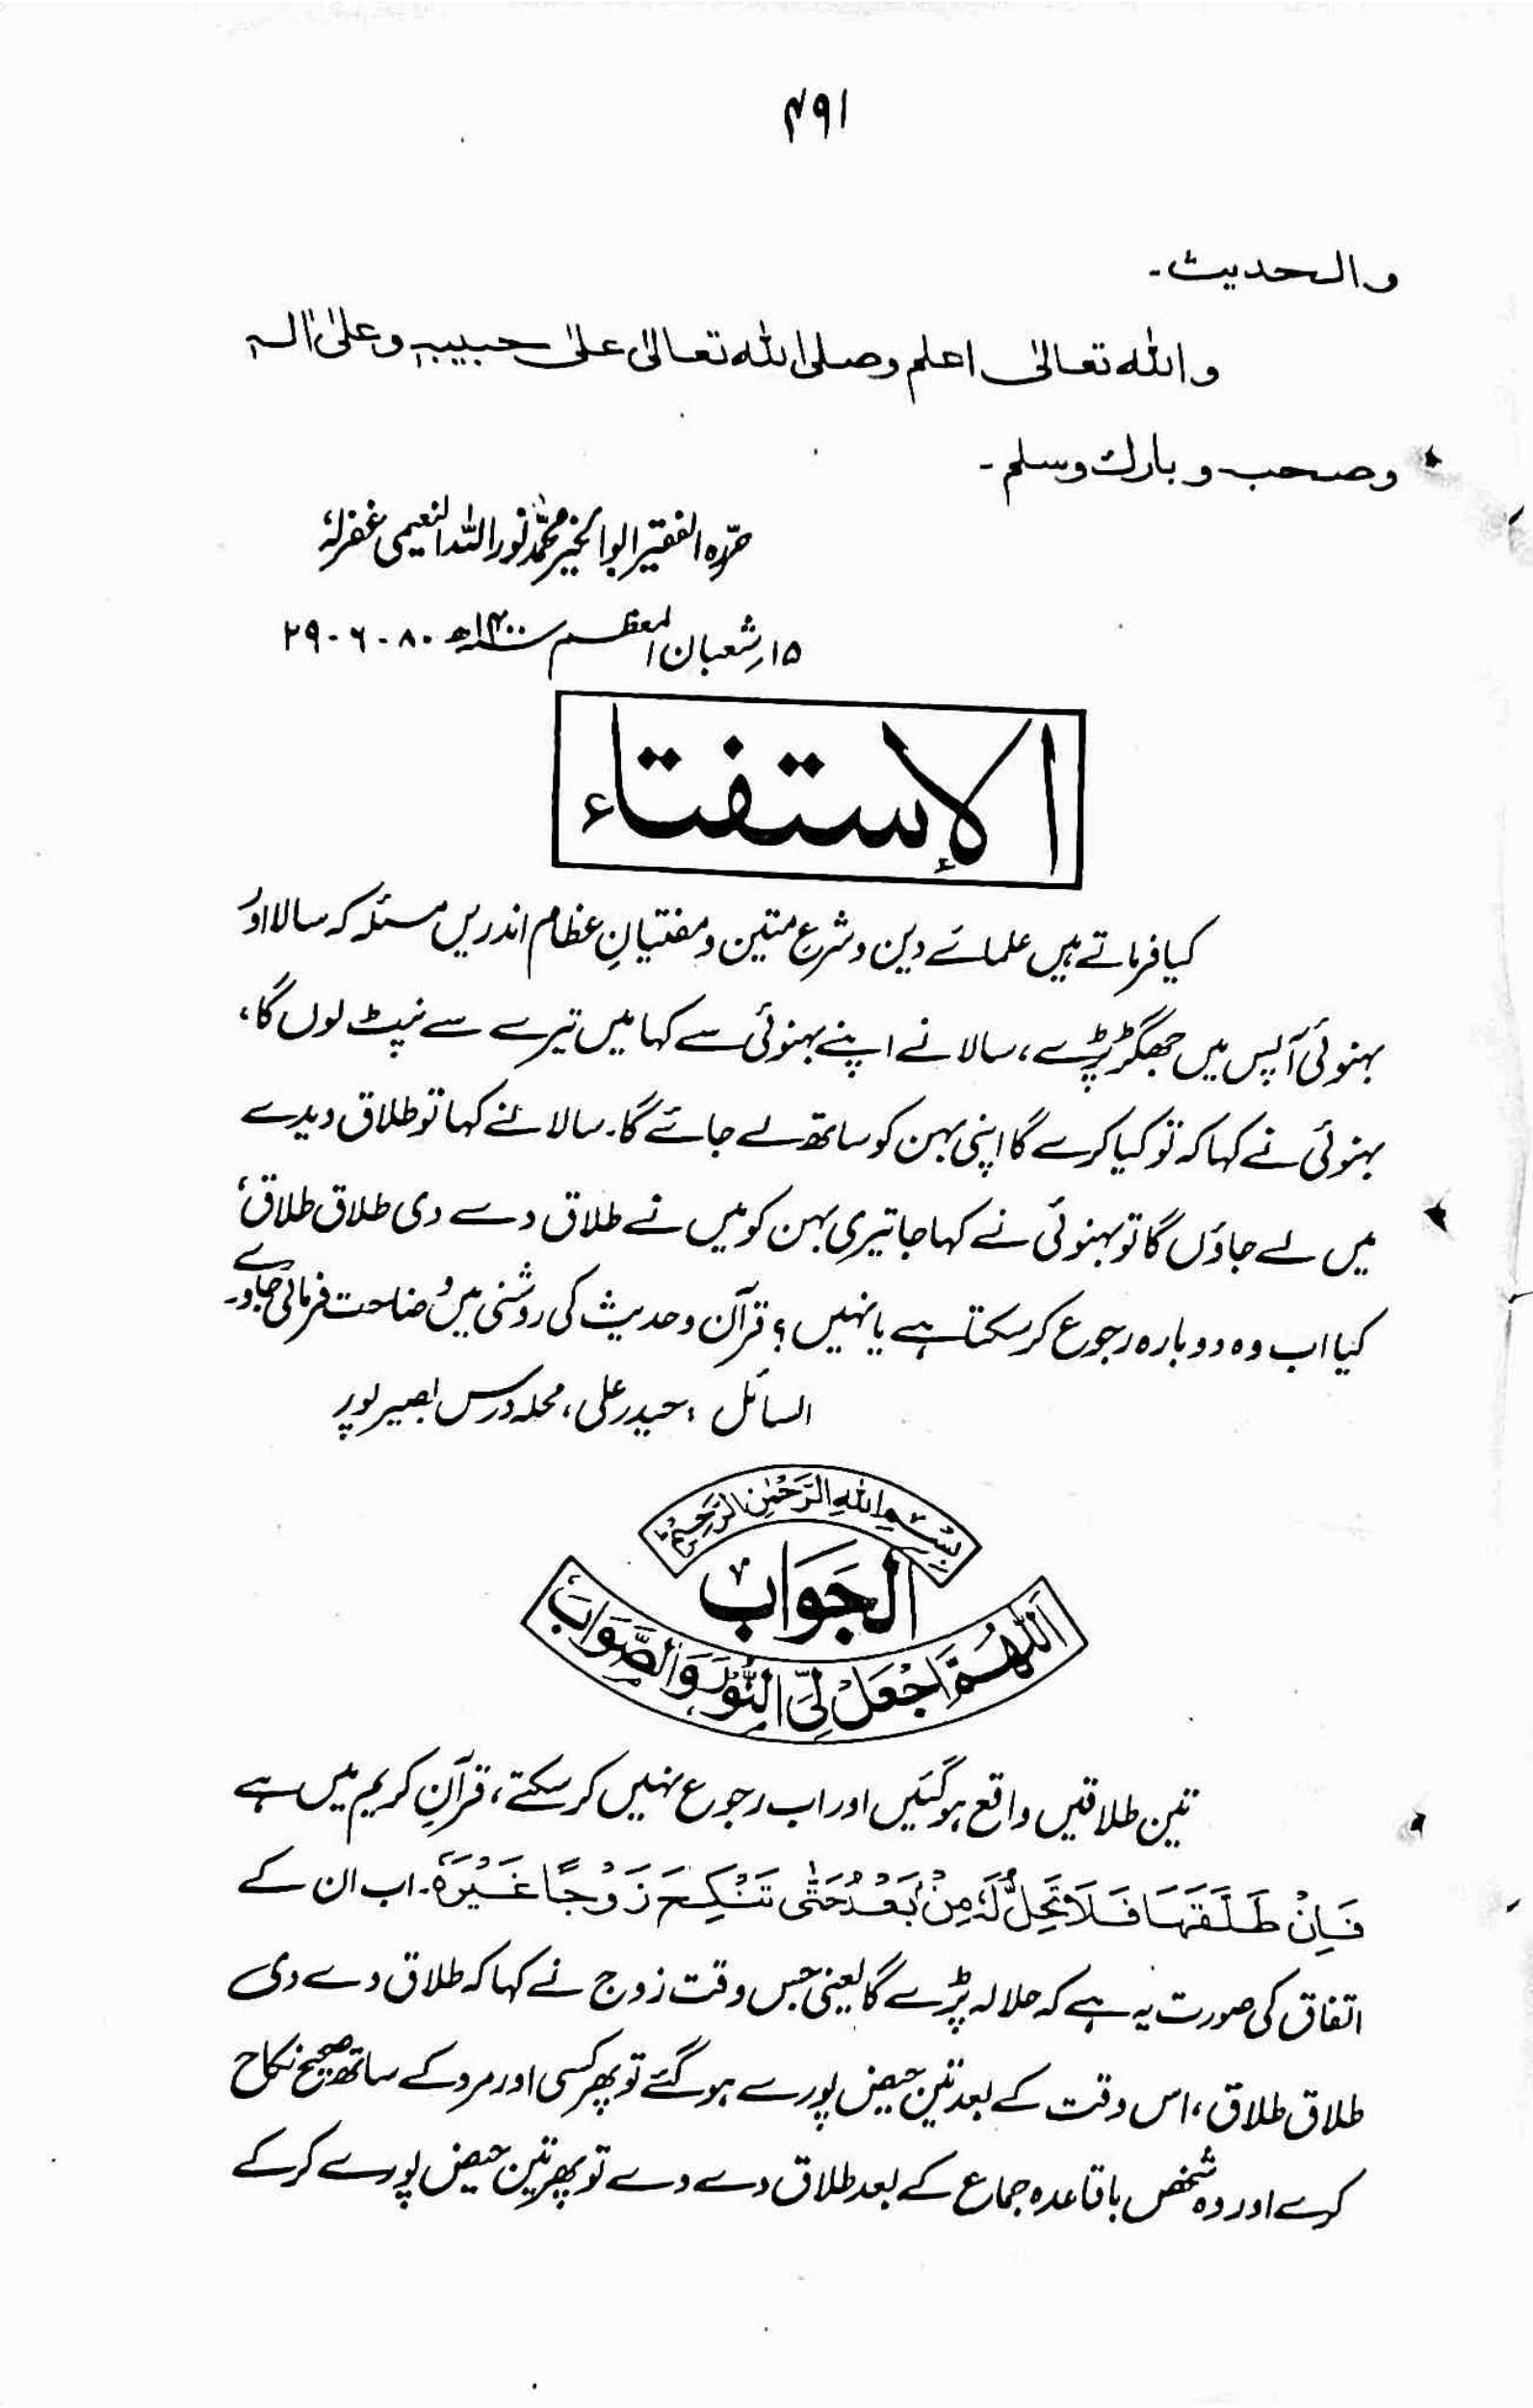 ۴۹۱
والحدیث۔
واللہ تعالیٰ اعلم وصلی اللہ تعالیٰ علیٰ حبیبہٖ وعلیٰ اٰلہٖ
وصحبہ وبارک وسلم۔
حرّرہ الفقیر ابو الخیر محمد نور اللہ النعیمی غفرلہٗ
۱۵؍شعبان المعظم سنہ ۱۴۰۰ھ ۸۰-۶-۲۹
الإستفتاء
کیا فرماتے ہیں علمائے دین و شرع متین و مفتیانِ عظام اندریں مسئلہ کہ سالا اور
بہنوئی آپس میں جھگڑ پڑے، سالا نے اپنے بہنوئی سے کہا میں تیرے سے نپٹ لوں گا،
بہنوئی نے کہا کہ تو کیا کرے گا اپنی بہن کو ساتھ لے جائے گا۔ سالا نے کہا تو طلاق دیدے
میں لے جاؤں گا تو بہنوئی نے کہا جا تیری بہن کو میں نے طلاق دے دی طلاق طلاق،
کیا اب وہ دوبارہ رجوع کر سکتا ہے یا نہیں؟ قرآن و حدیث کی روشنی میں وضاحت فرمائی جاوے۔
السائل: حیدر علی، محلہ درس بصیر پور
بِسْمِ اللہِ الرَّحْمٰنِ الرَّحِیْمِ
الجَوَابُ
اَللّٰھُمَّ اجْعَلْ لِیَ النُّوْرَ وَالصَّوَابَ
تین طلاقیں واقع ہو گئیں اور اب رجوع نہیں کر سکتے، قرآنِ کریم میں ہے
فَاِنْ طَلَّقَهَا فَلَا تَحِلُّ لَهٗ مِنْۢ بَعْدُ حَتّٰی تَنْكِحَ زَوْجًا غَیْرَهٗ۔ اب ان کے
اتفاق کی صورت یہ ہے کہ حلالہ پڑے گا یعنی جس وقت زوج نے کہا کہ طلاق دے دی
طلاق طلاق، اس وقت کے بعد تین حیض پورے ہو گئے تو پھر کسی اور مرد کے ساتھ صحیح نکاح
کرے اور وہ شخص باقاعدہ جماع کے بعد طلاق دے دے تو پھر تین حیض پورے کر کے